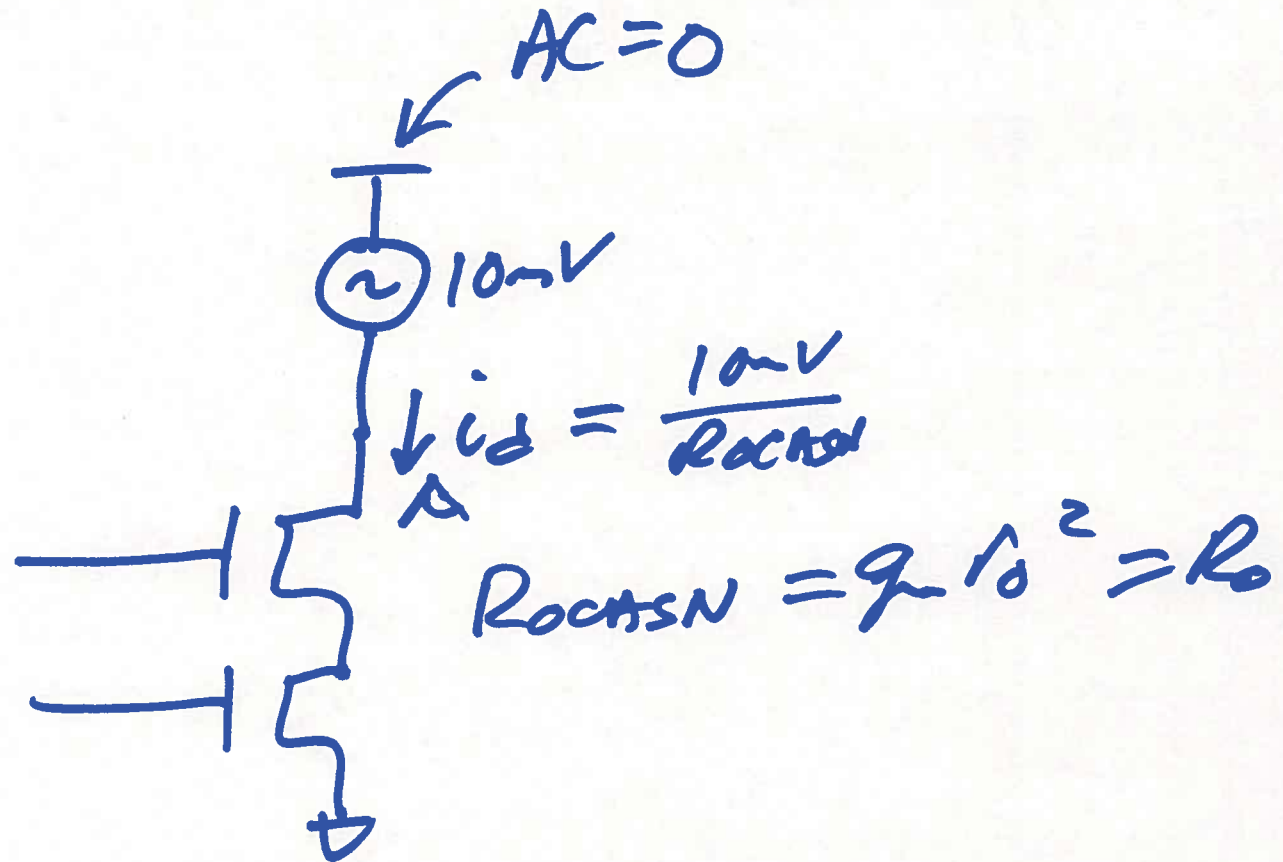 AC=0
10mV
i_d = 10mV / ROCASN
ROCASN = gm ro² = Ro